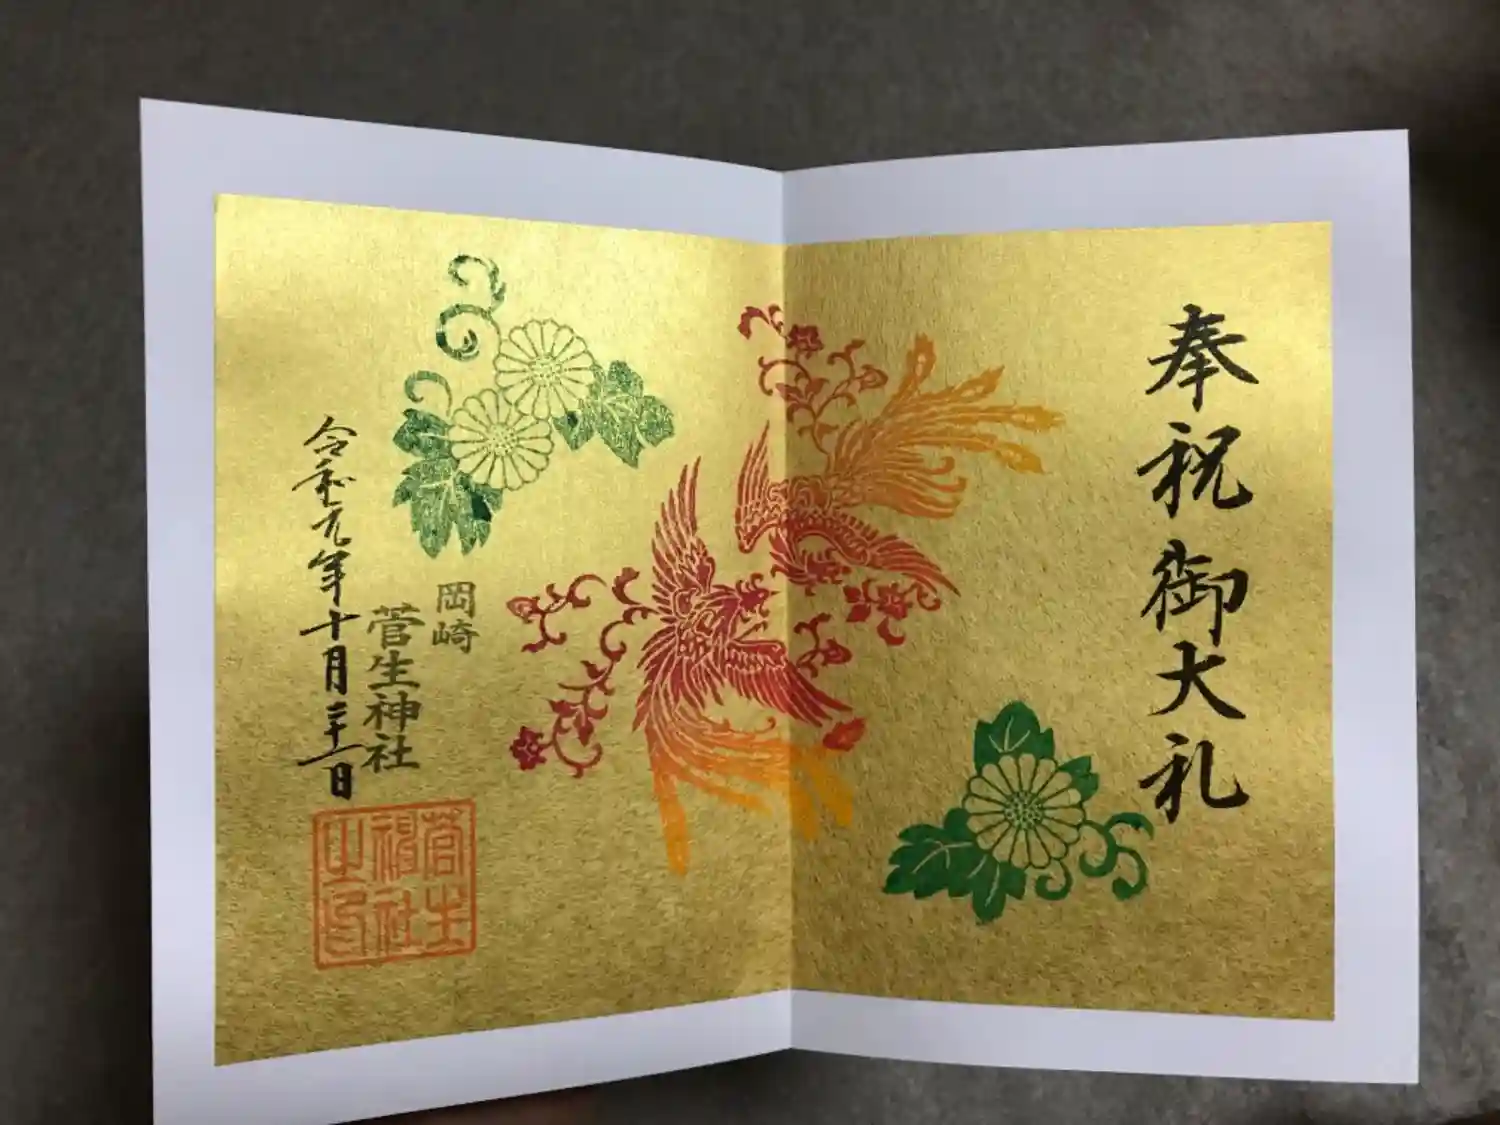 奉祝御大礼
岡崎
菅生神社
令和元年十月二十二日
菅生
神社
之印